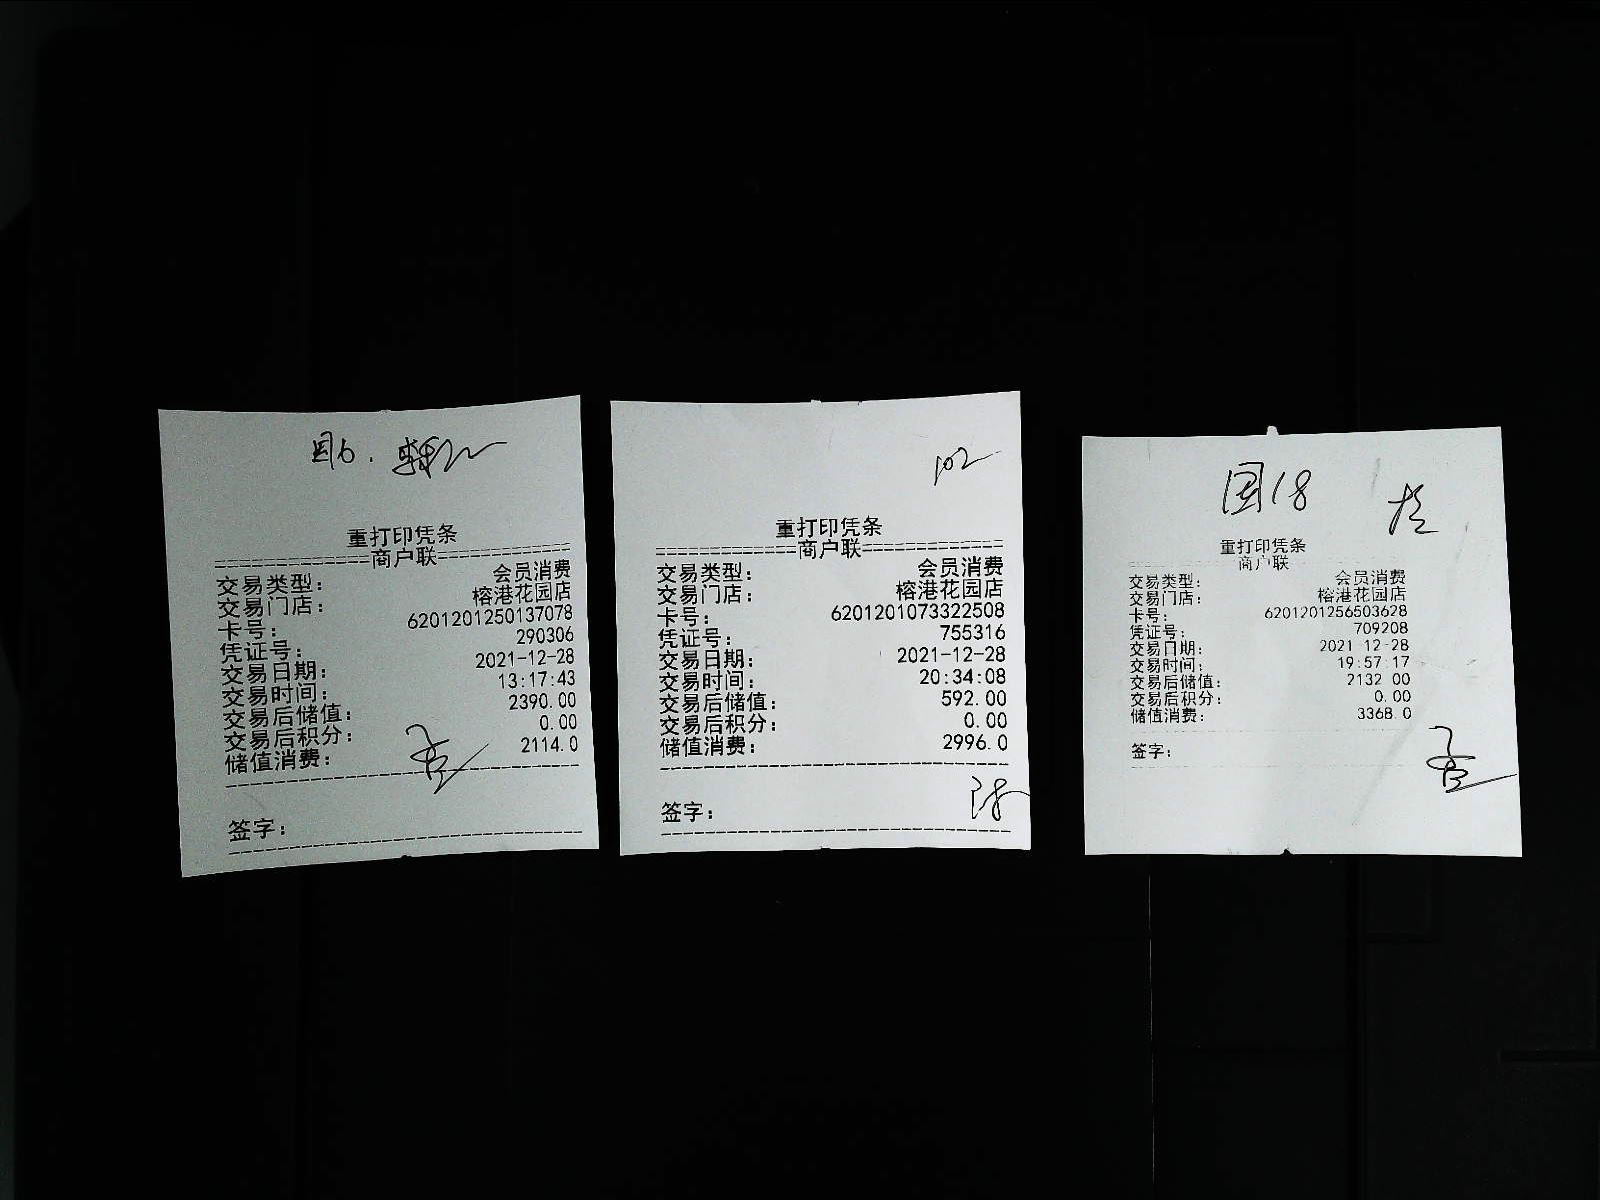 重打印凭条
商户联
交易类型： 会员消费
交易门店： 榕港花园店
卡号： 6201201250137078
凭证号： 290306
交易日期： 2021-12-28
交易时间： 13:17:43
交易后储值： 2390.00
交易后积分： 0.00
储值消费： 2114.0
签字：
102
重打印凭条
商户联
交易类型： 会员消费
交易门店： 榕港花园店
卡号： 6201201073322508
凭证号： 755316
交易日期： 2021-12-28
交易时间： 20:34:08
交易后储值： 592.00
交易后积分： 0.00
储值消费： 2996.0
签字：
国18
重打印凭条
商户联
交易类型： 会员消费
交易门店： 榕港花园店
卡号： 6201201256503628
凭证号： 709208
交易日期： 2021-12-28
交易时间： 19:57:17
交易后储值： 2132.00
交易后积分： 0.00
储值消费： 3368.0
签字：